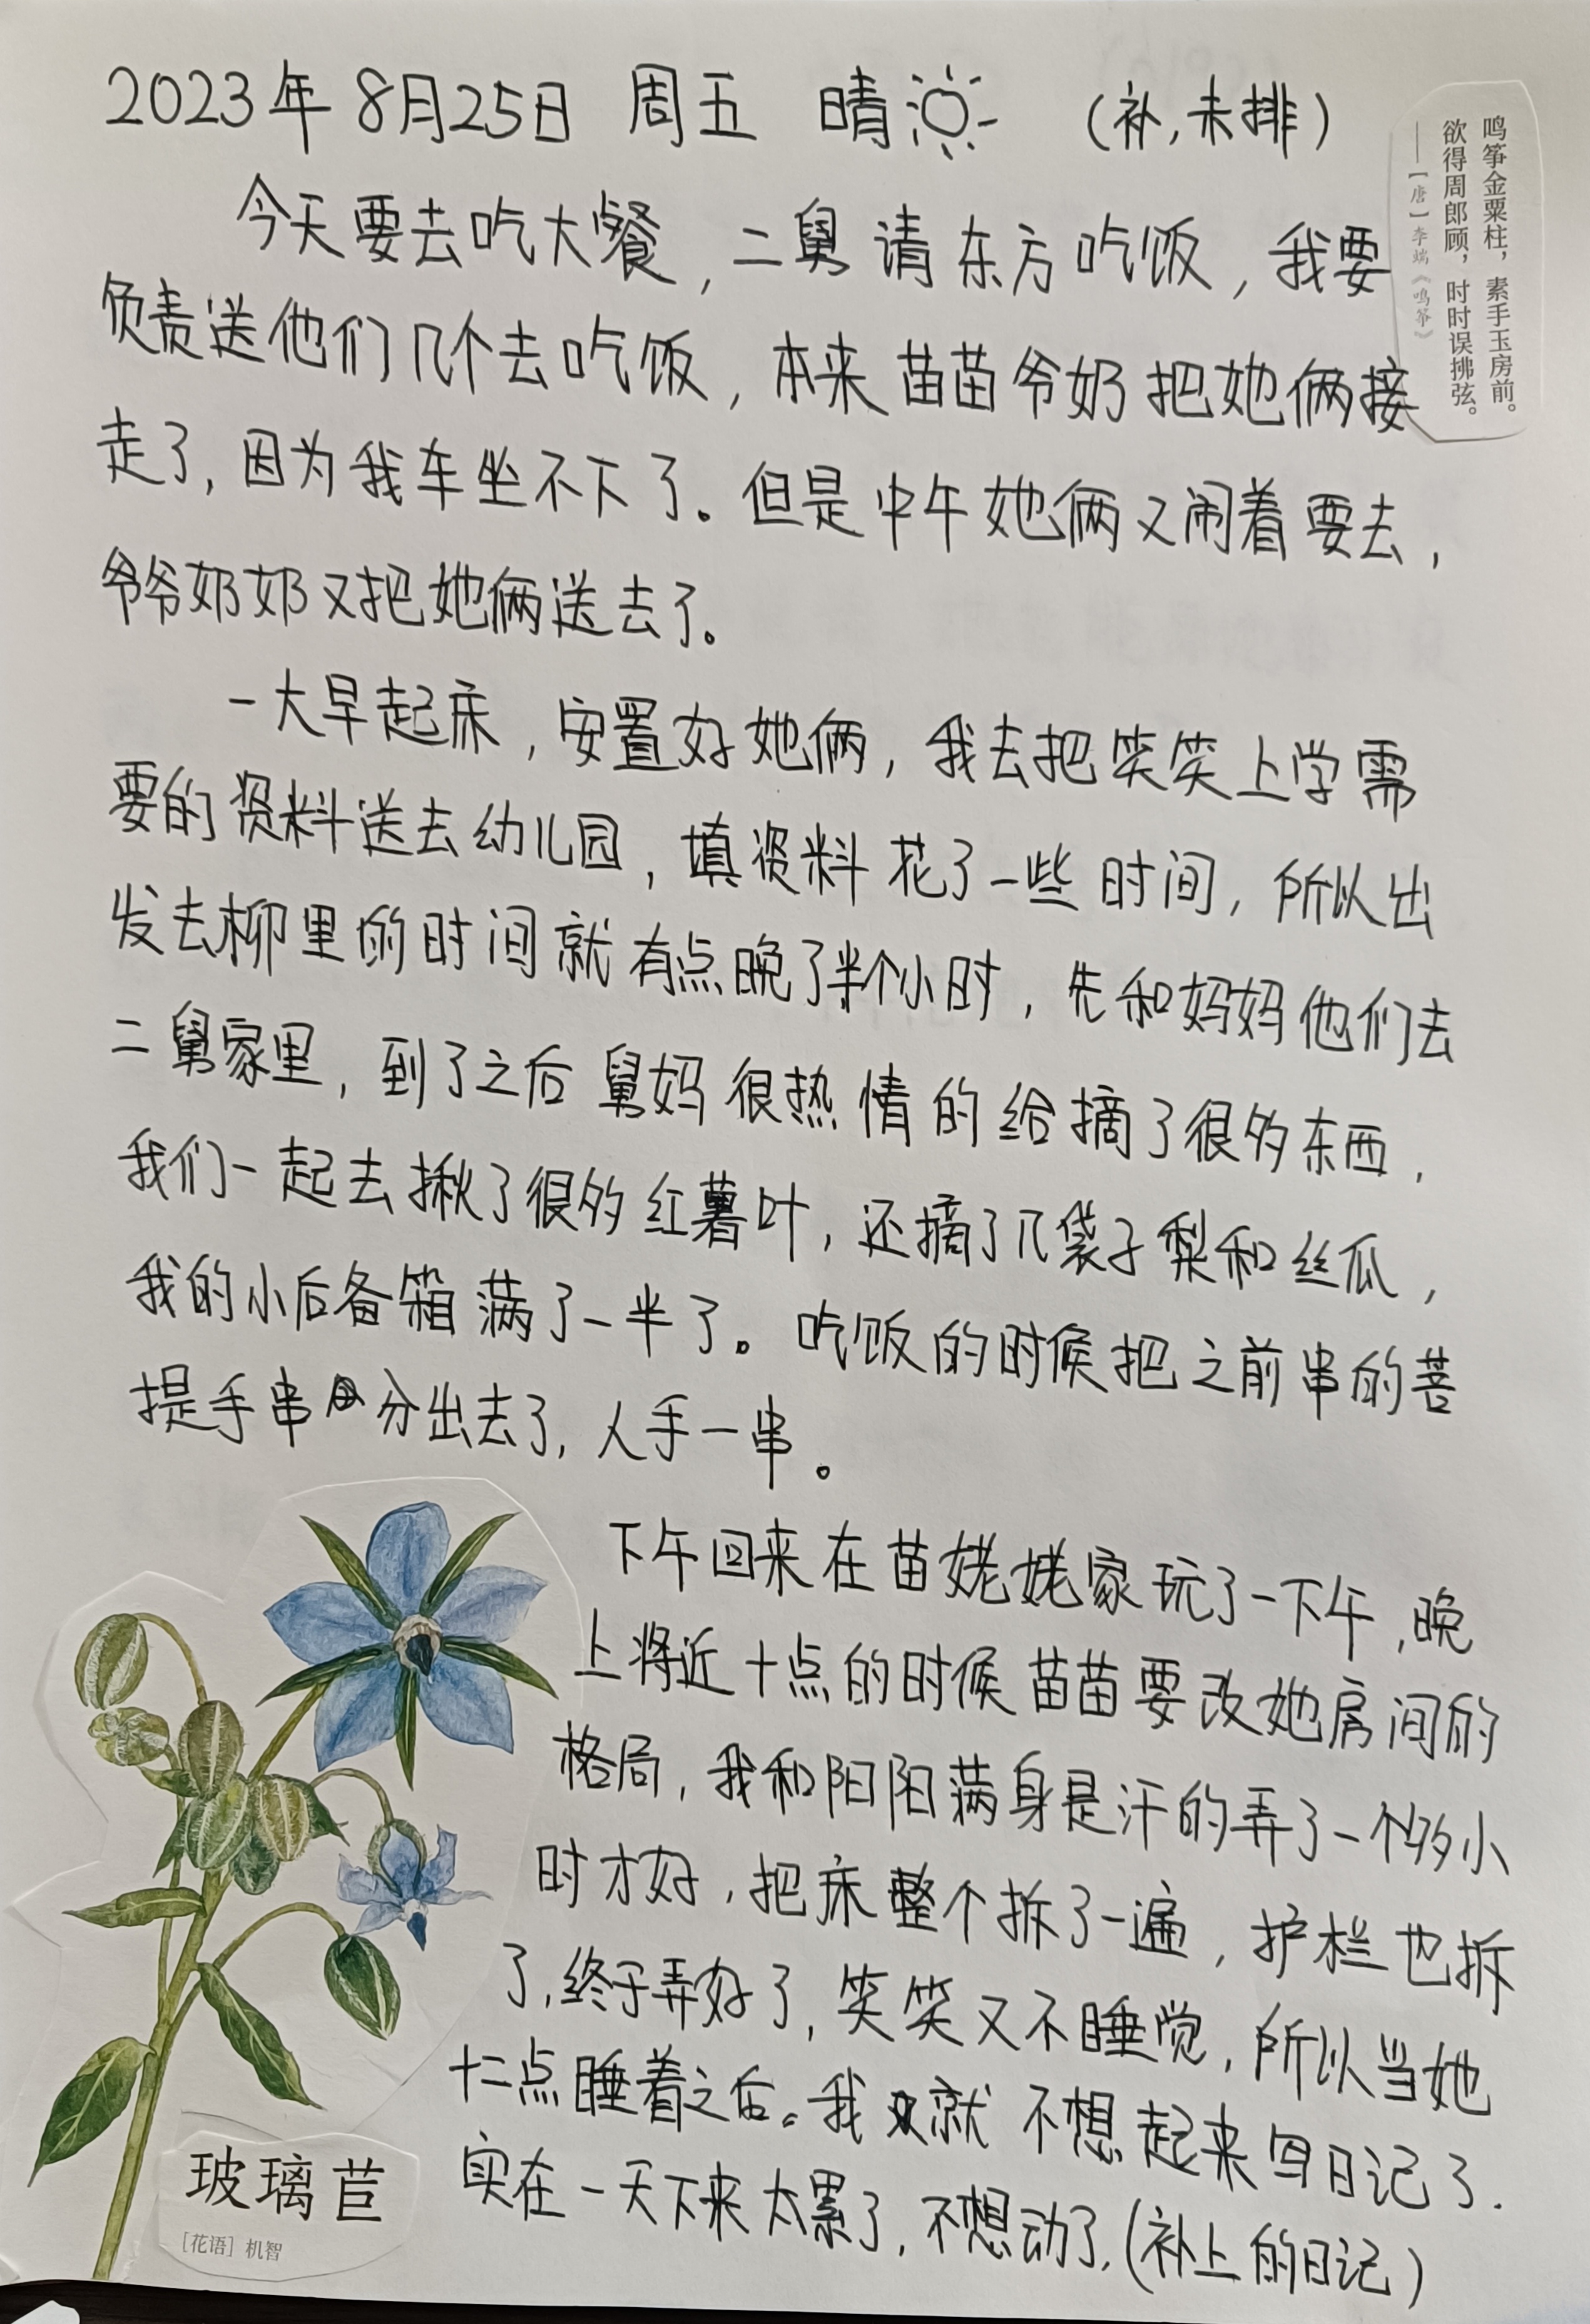 2023年8月25日 周五 晴 (补,未排)
鸣筝金粟柱，素手玉房前。
欲得周郎顾，时时误拂弦。
——［唐］李端《鸣筝》
今天要去吃大餐,二舅请东方吃饭,我要
负责送他们几个去吃饭,本来苗苗爷奶把她俩接
走了,因为我车坐不下了。但是中午她俩又闹着要去,
爷爷奶奶又把她俩送去了。
一大早起床,安置好她俩,我去把笑笑上学需
要的资料送去幼儿园,填资料花了一些时间,所以出
发去柳里的时间就有点晚了半个小时,先和妈妈他们去
二舅家里,到了之后舅妈很热情的给摘了很多东西,
我们一起去揪了很多红薯叶,还摘了几袋子梨和丝瓜,
我的小后备箱满了一半了。吃饭的时候把之前串的菩
提手串分出去了,人手一串。
下午回来在苗姥姥家玩了一下午,晚
上将近十点的时候苗苗要改她房间的
格局,我和阳阳满身是汗的弄了一个多小
时才好,把床整个拆了一遍,护栏也拆
了,终于弄好了,笑笑又不睡觉,所以当她
十二点睡着之后。我就不想起来写日记了.
实在一天下来太累了,不想动了.(补上的日记)
玻璃苣
［花语］机智